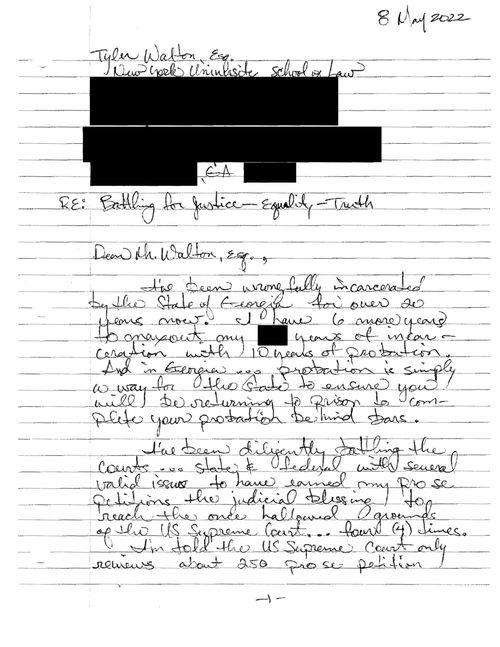 8 May 2022
Tyler Walton, Esq.
New York University School of Law
GA
RE: Battling for Justice — Equality — Truth
Dear Mr. Walton, Esq.,
I've been wrongfully incarcerated
by the State of Georgia for over 20
years now. I have 6 more years
to maxout my years of incar-
ceration with 10 years of probation.
And in Georgia ... probation is simply
a way for the State to ensure you
will be returning to prison to com-
plete your probation behind bars.
I've been diligently battling the
courts ... state & federal with several
valid issues to have earned my pro se
petitions the judicial blessing to
reach the once hallowed grounds
of the US Supreme Court ... four (4) times.
I'm told the US Supreme Court only
reviews about 250 pro se petition
-1-